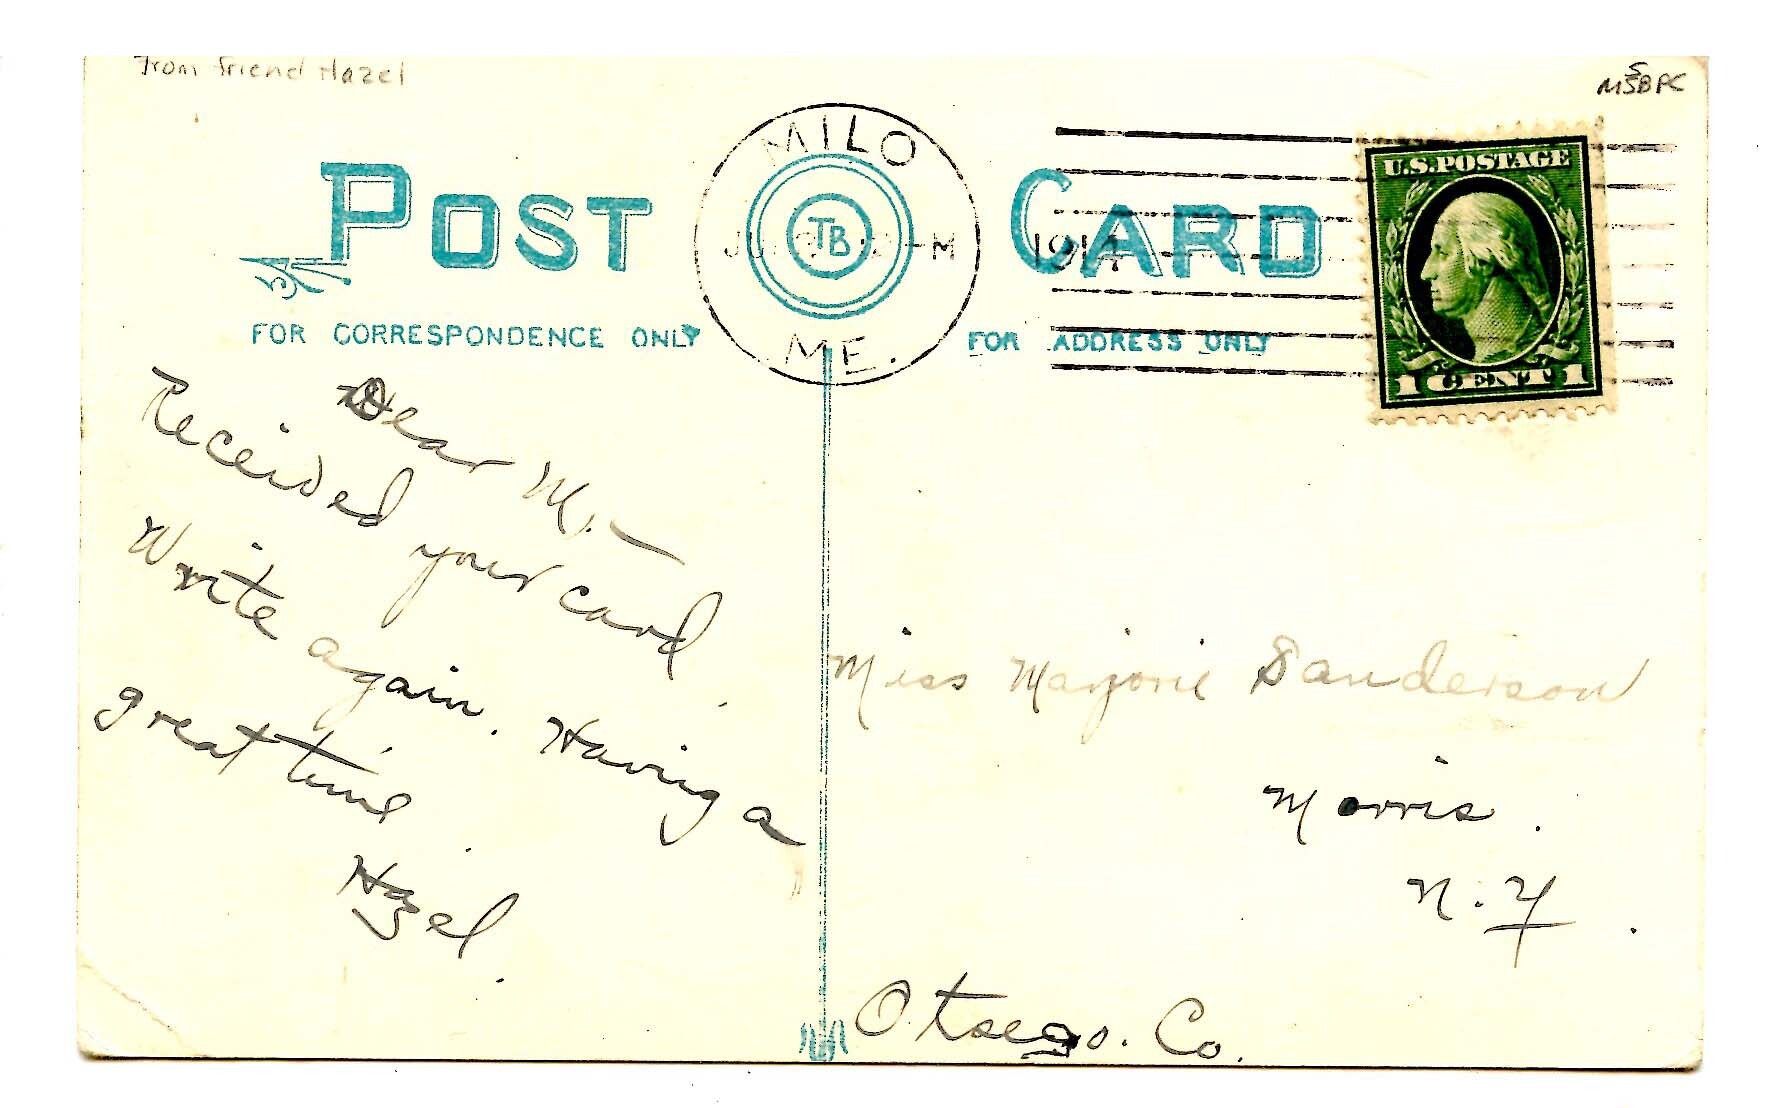 From friend Hazel
MSBPC
S
POST CARD
MILO
TB
M
1914
ME.
U.S. POSTAGE
1 CENT 1
FOR CORRESPONDENCE ONLY
FOR ADDRESS ONLY
Dear M. —
Received your card
Write again. Having a
great time
Hazel.
Miss Marjorie Sanderson
Morris.
N.Y.
Otsego. Co.